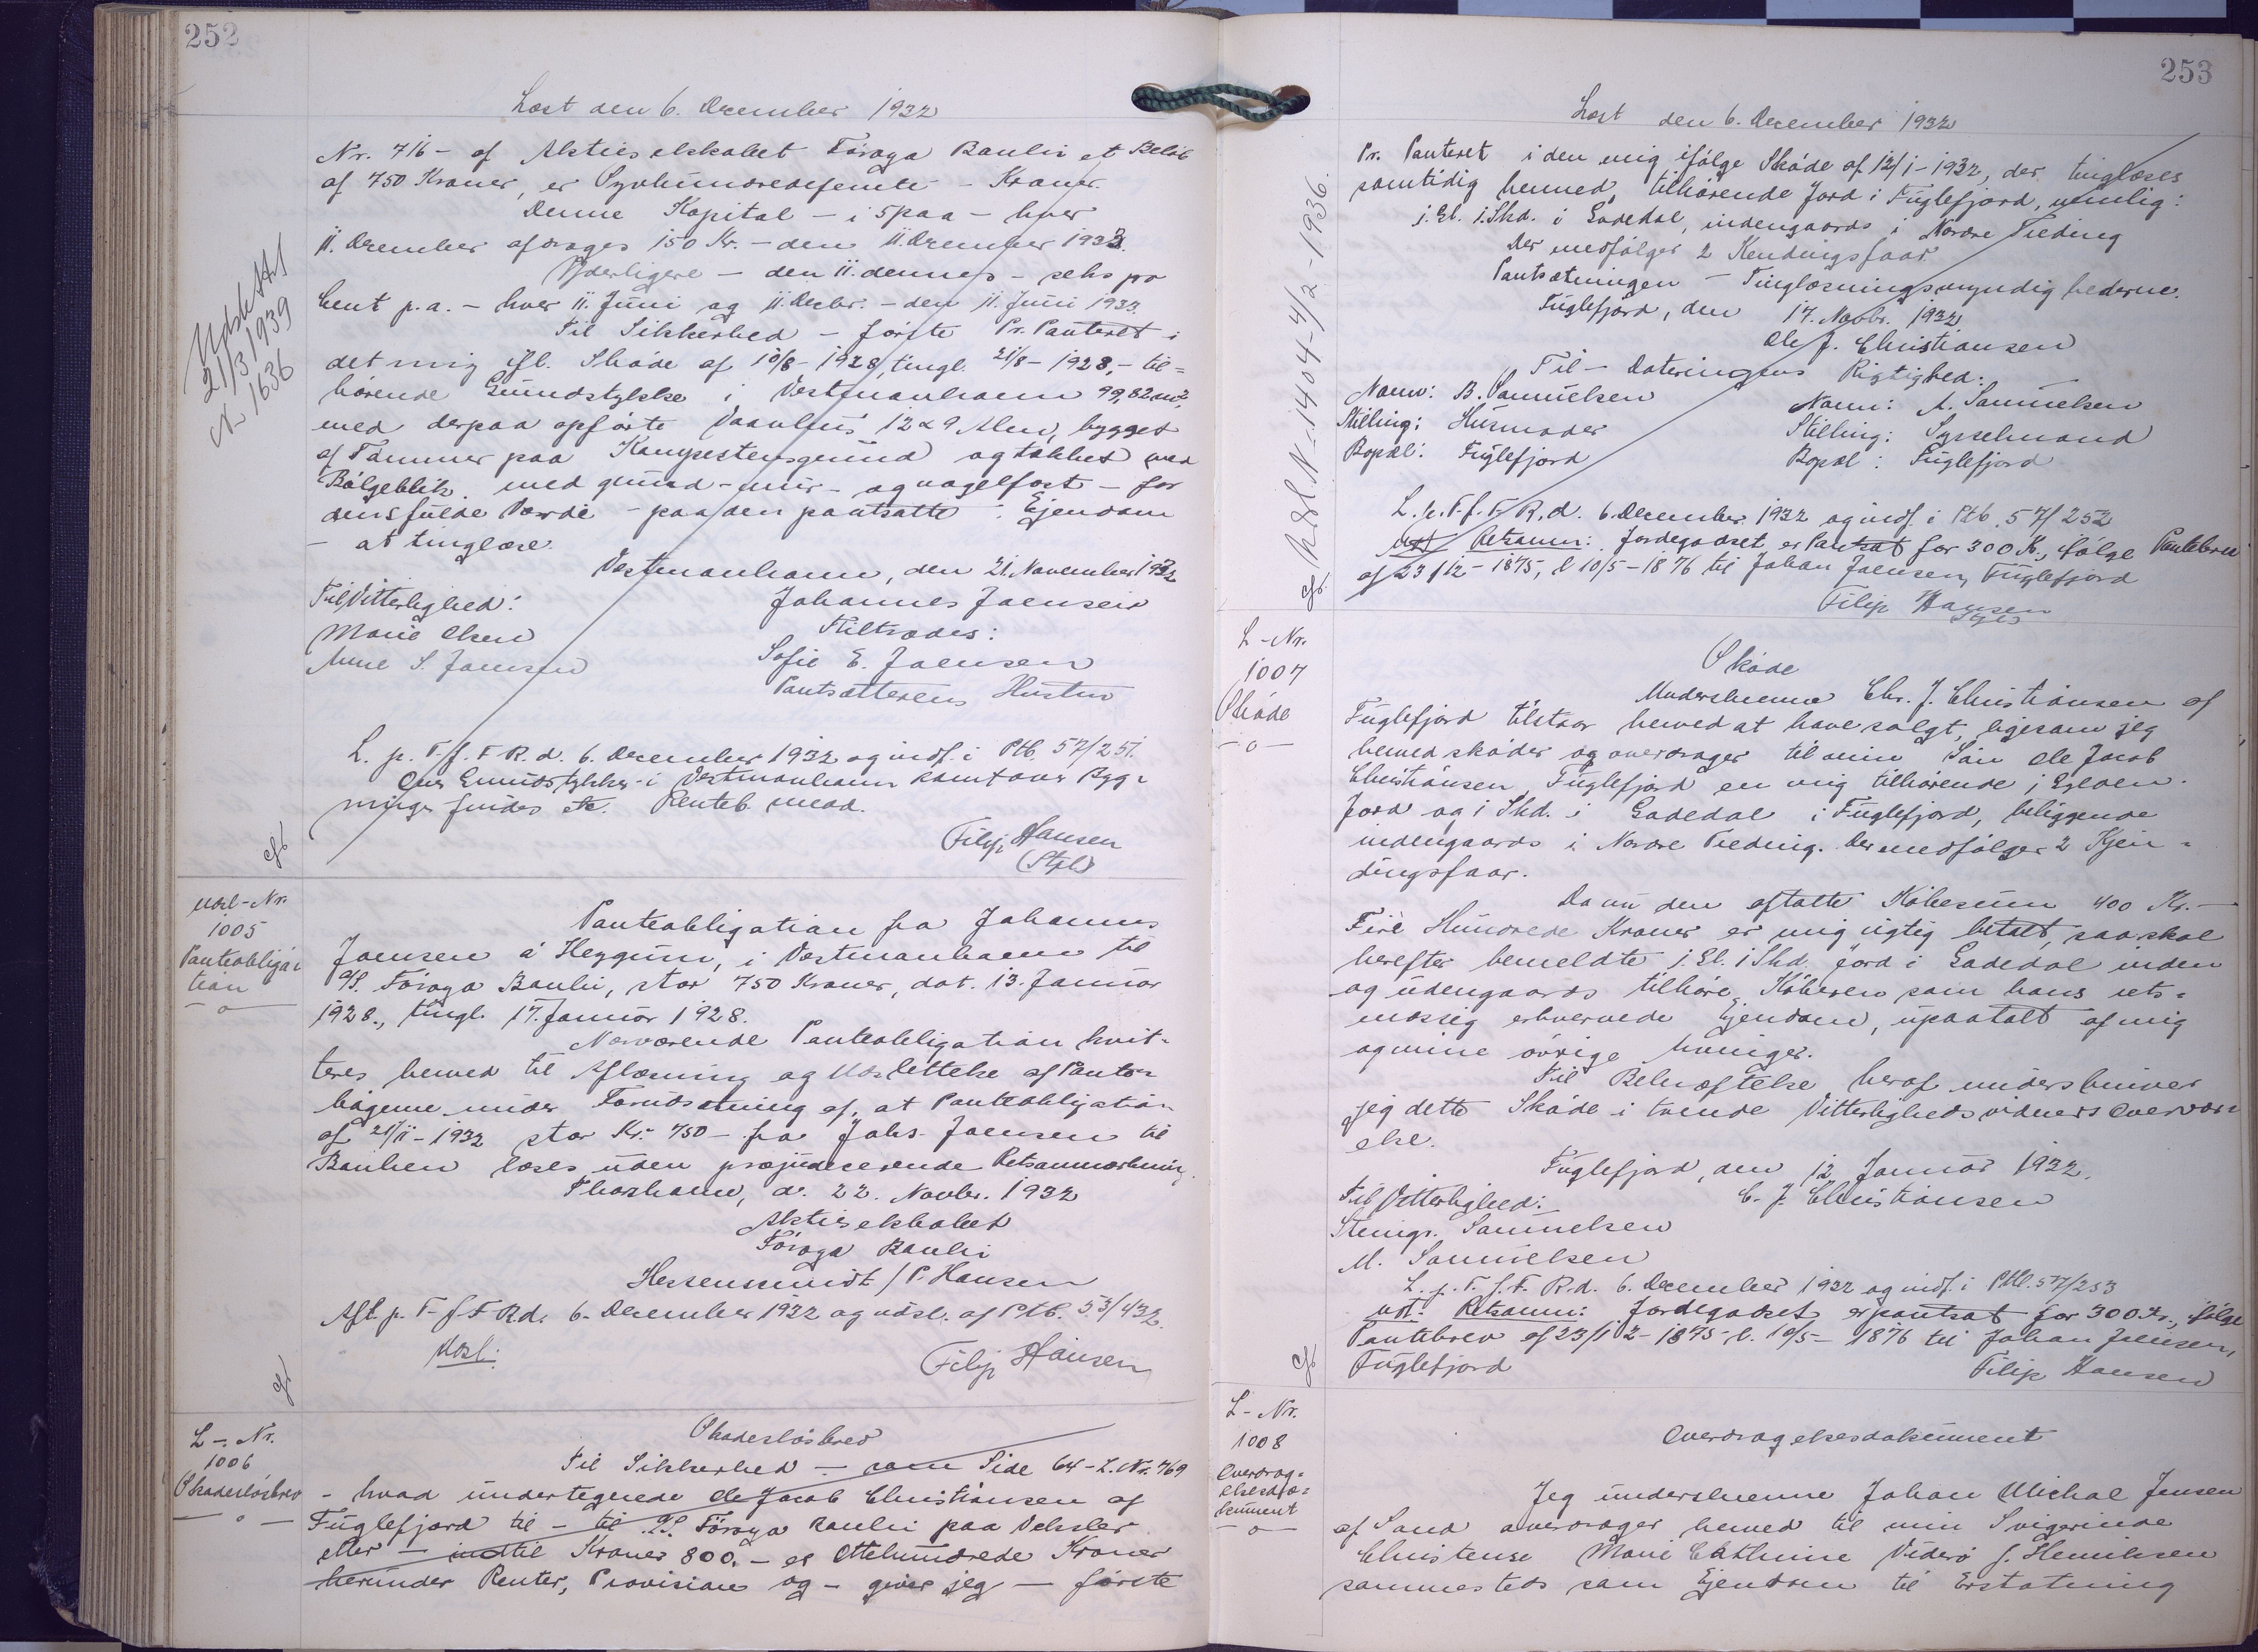 252
Læst den 6. December 1932
Nr. 716 - af Aktieselskabet Føroya Banki et Beløb
af 750 Kroner, er Syvhundredefemti - Kroner.
Denne Kapital - i 5 paa - hver
11. December afdrages 150 Kr. - den 11. December 1933.
Yderligere - den 11. dennes - seks pro
Cent p.a. - hver 11. Juni og 11. Decbr. - den 11. Juni 1933.
Til Sikkerhed - første Pr. Panteret i
det mig ifl. Skøde af 10/8 - 1928, tingl. 21/8 - 1928, - til=
hørende Grundstykke i Vestmanhavn 99,82 m²,
med derpaa opførte Vaanhus 12 x 9 Alen, bygget
af Tømmer paa Kampestensgrund og tækket med
Bølgeblik. med grund - mur - og nagelfast - for
dens fulde Værdi - paa den pantsatte Ejendom
- at tinglæse.
Vestmanhavn, den 21. November 1932
Til Vitterlighed: Johannes Joensen
Marie Olsen Tiltrædes:
Anne S. Joensen Sofie E. Joensen
Pantsætterens Hustru
L. p. T. f. F R. d. 6. December 1932 og indf. i Ptb. 57/251.
Ovs Grundstykke i Vestmanhavn samt ovs Byg=
ninger findes etc. Renteb. mod.
Filip Hansen
(Stpl)
Udslettet
21/3 1939
N 1636
Udsl - Nr.
1005
Panteobliga=
tion
-o-
Panteobligation fra Johannes
Joensen á Heygum, i Vestmanhavn til
A/S. Føroya Banki, stor 750 Kroner, dat. 13. Januar
1928., tingl. 17. Januar 1928.
Nærværende Panteobligation kvit=
teres herved til Aflæsning og Udslettelse af Pante=
bøgerne under Forudsætning af, at Panteobligation
af 21/11 - 1932 stor Kr. 750 - fra Johs. Joensen til
Banken læses uden præjudicerende Retsanmærkning.
Thorshavn, d. 22. Novbr. 1932
Aktieselskabet
Føroya Banki
Hessenschmidt / P. Hansen
Afl. p. T. f. F R. d. 6. December 1932 og udsl. af Ptb. 53/432.
Udsl: Filip Hansen
L - Nr.
1006
Skadesløsbrev
-o-
Skadesløsbrev
Til Sikkerhed - som Side 64 - L. Nr. 769
- hvad undertegnede Ole Jacob Christiansen af
Fuglefjord til - til A/S. Føroya Banki paa Veksler
eller - indtil Kroner 800. - er Ottehundrede Kroner
herunder Renter, Provision og - giver jeg - første
253
Læst den 6. December 1932
Pr. Panteret i den mig ifølge Skøde af 12/1 - 1932, der tinglæses
samtidig hermed, tilhørende Jord i Fuglefjord, nemlig:
1. Gl. 1. Skd. i Gadedal, indengaards i Nordre Tieding
Der medfølger 2 Kendingsfaar
Pantsætningen - Tinglæsningsmyndighederne.
Fuglefjord, den 17. Novbr. 1932
Ole J. Christiansen
Til - Dateringens Rigtighed:
Navn: B. Samuelsen Navn: A. Samuelsen
Stilling: Husmoder Stilling: Sysselmand
Bopæl: Fuglefjord Bopæl: Fuglefjord
L. p. T. f. F R. d. 6. December 1932 og indf. i Ptb. 57/252
Udt Retsanm: Jordegodset er Pantsat for 300 Kr., ifølge Pantebrev
af 23/12 - 1875, l 10/5 - 1876 til Johan Joensen, Fuglefjord
Filip Hansen
Udsl. N. 1404 - 4/2 - 1936.
L - Nr.
1007
Skøde
-o-
Skøde
Underskrevne Chr. J. Christiansen af
Fuglefjord tilstaar herved at have solgt, ligesom jeg
herved skøder og overdrager til min Søn Ole Jacob
Christiansen, Fuglefjord en mig tilhørende 1 Gylden
Jord og 1 Skd. i Gadedal i Fuglefjord, beliggende
indengaards i Nordre Tieding. Der medfølger 2 Kjen=
dingsfaar.
Da nu den aftalte Købesum 400 Kr. -
Fire Hundrede Kroner er mig rigtig betalt, saa skal
herefter bemeldte 1. Gl. 1 Skd. Jord i Gadedal inden
og udengaards tilhøre Køberen som hans rets=
mæssig erhvervede Ejendom, upaatalt af mig
og mine øvrige Arvinger.
Til Bekræftelse heraf underskriver
jeg dette Skøde i tvende Vitterlighedsvidners Overvær=
else.
Fuglefjord, den 12 Januar 1932.
Til Vitterlighed: C. J. Christiansen
Samuelsen
M. Samuelsen
L. p. T. f. F. R. d. 6. December 1932 og indf. i Ptb. 57/253
Udt. Retsanm: Jordegodset er pantsat for 300 Kr., ifølge
Pantebrev af 23/12 - 1875, l. 10/5 - 1876 til Johan Joensen,
Fuglefjord Filip Hansen
L - Nr.
1008
Overdrag=
elsesdo=
kument
-o-
Overdragelsesdokument
Jeg underskrevne Johan Michal Jensen
af Sand overdrager herved til min Svigerinde
Christense Marie Cathrine Viderø f. Henriksen
sammesteds som Ejendom til Erstatning